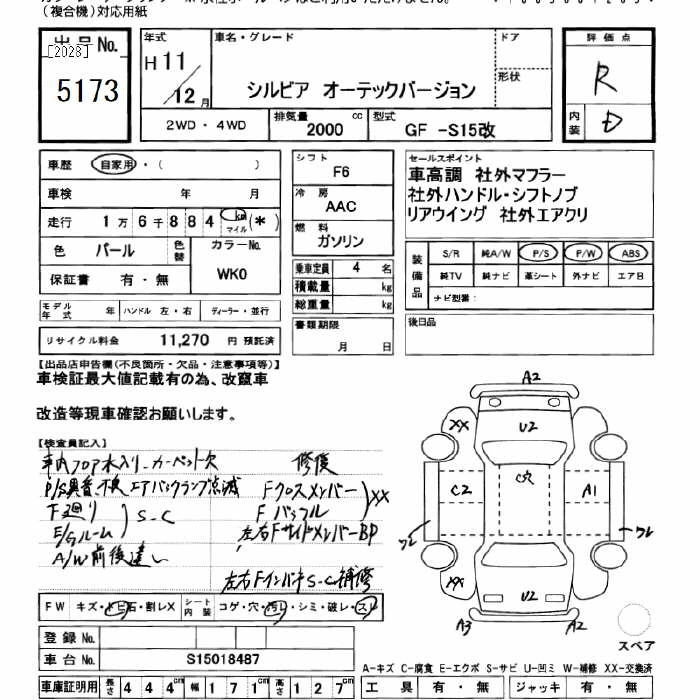 (複合機)対応用紙
出品No. [2028] 5173
年式 H11/12月
車名・グレード シルビア オーテックバージョン
ドア
形状
2WD・4WD
排気量 2000 cc
型式 GF -S15改
評価点 R
内装 D
車歴 自家用・( )
車検 年 月
走行 1万6千884 km マイル (*)
色 パール 色替 カラーNo. WK0
保証書 有・無
モデル年式 年 ハンドル 左・右 ディーラー・並行
リサイクル料金 11,270 円 預託済
シフト F6
冷房 AAC
燃料 ガソリン
乗車定員 4 名
積載量 kg
総重量 kg
書類期限 月 日
セールスポイント
車高調 社外マフラー
社外ハンドル・シフトノブ
リアウイング 社外エアクリ
装備品 S/R 純A/W P/S P/W ABS
純TV 純ナビ 革シート 外ナビ エアB
ナビ型番:
後日品
【出品店申告欄(不良箇所・欠品・注意事項等)】
車検証最大値記載有の為、改竄車
改造等現車確認お願いします。
【検査員記入】
車内フロア水入り カーペット欠
P/S異音 不良 エアバックランプ点滅
下廻り
E/gルーム
S-C
A/W前後違い
修復
Fクロスメンバー
Fバッフル
XX
左右FサイドメンバーBP
左右Fインパネ S-C 補修
A2
XX
U2
C穴
C2
A1
ワレ
ワレ
XX
U2
A3
A2
スペア
FW キズ・トビ石・割レX シート内装 コゲ・穴・汚レ・シミ・破レ・スレ
登録No.
車台No. S15018487
車庫証明用 長さ 444cm 幅 171cm 高さ 127cm
A-キズ C-腐食 E-エクボ S-サビ U-凹ミ W-補修 XX-交換済
工具 有・無 ジャッキ 有・無